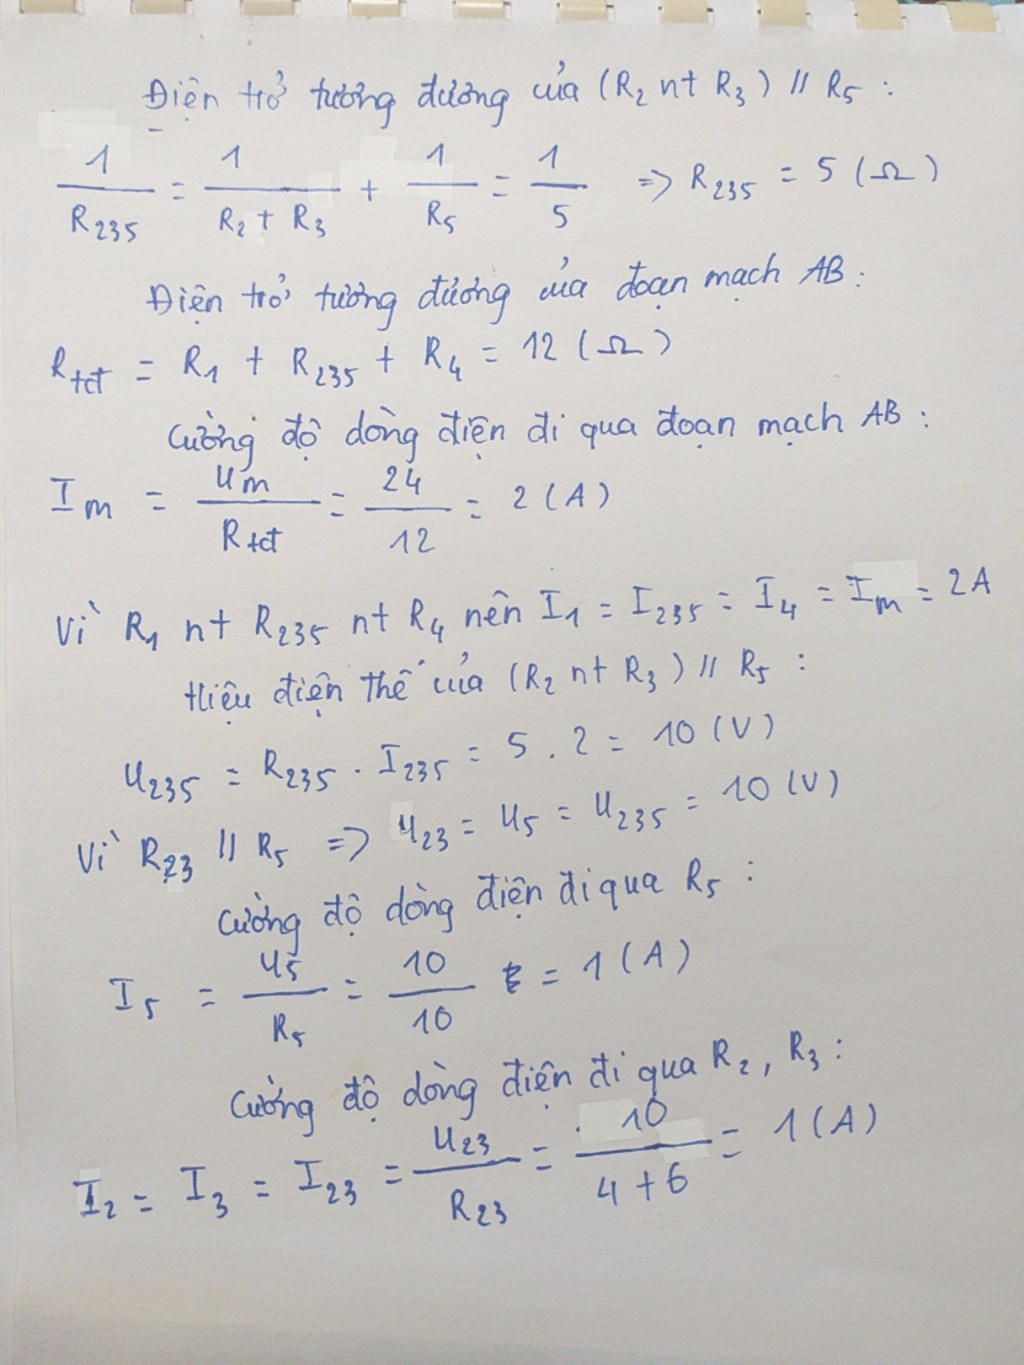 Điện trở tương đương của (R₂ nt R₃) // R₅ :
1/R₂₃₅ = 1/(R₂ + R₃) + 1/R₅ = 1/5 => R₂₃₅ = 5 (Ω)
Điện trở tương đương của đoạn mạch AB :
Rtđ = R₁ + R₂₃₅ + R₄ = 12 (Ω)
Cường độ dòng điện đi qua đoạn mạch AB :
Im = Um/Rtđ = 24/12 = 2 (A)
Vì R₁ nt R₂₃₅ nt R₄ nên I₁ = I₂₃₅ = I₄ = Im = 2A
Hiệu điện thế của (R₂ nt R₃) // R₅ :
U₂₃₅ = R₂₃₅ . I₂₃₅ = 5 . 2 = 10 (V)
Vì R₂₃ // R₅ => U₂₃ = U₅ = U₂₃₅ = 10 (V)
Cường độ dòng điện đi qua R₅ :
I₅ = U₅/R₅ = 10/10 = 1 (A)
Cường độ dòng điện đi qua R₂, R₃ :
I₂ = I₃ = I₂₃ = U₂₃/R₂₃ = 10/(4 + 6) = 1 (A)